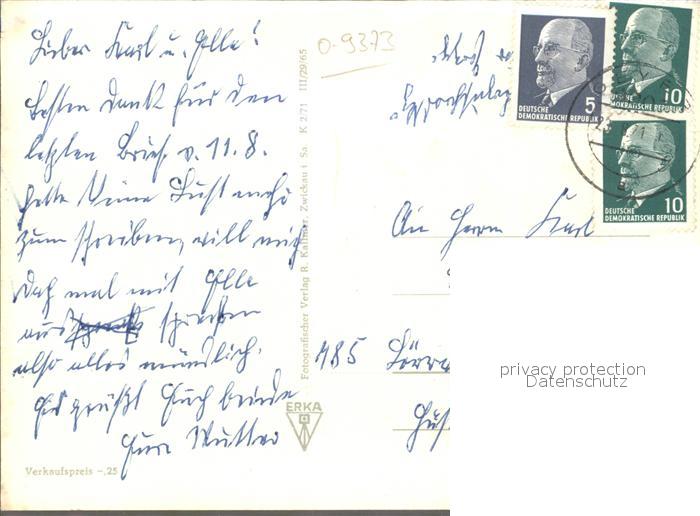 Lieber Karl u. Elle!
Besten Dank für den
letzten Brief v. 11.8.
Hatte keine Lust mehr
zum schreiben, will mich
doch mal mit Elle
aus sprechen
also alles mündlich.
Es grüßt Euch beide
Eure Mutter
Verkaufspreis -,25
Fotografischer Verlag R. Kallmer, Zwickau i. Sa. K 2/71 III/29/65
ERKA
0-9373
5
DEUTSCHE
DEMOKRATISCHE REPUBLIK
10
DEUTSCHE
DEMOKRATISCHE REPUBLIK
10
DEUTSCHE
DEMOKRATISCHE REPUBLIK
An Herrn Karl
785 Lörra
privacy protection
Datenschutz